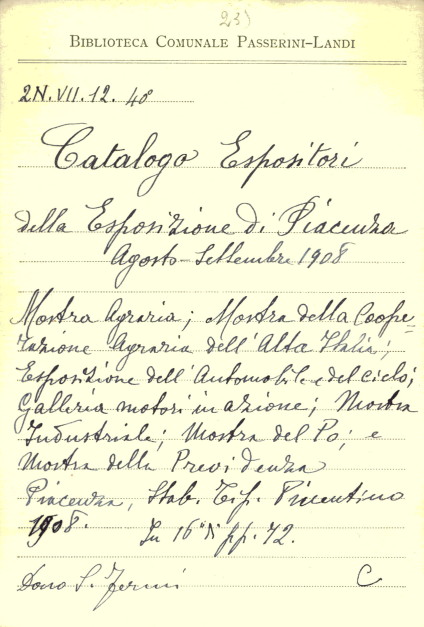 BIBLIOTECA COMUNALE PASSERINI-LANDI
2N.VII.12. 40
Catalogo Espositori
della Esposizione di Piacenza
Agosto-Settembre 1908
Mostra Agraria; Mostra della Coope=
razione Agraria dell'Alta Italia;
Esposizione dell'Automobile e del ciclo;
Galleria motori in azione; Mostra
Industriale; Mostra del Po; e
Mostra della Previdenza
Piacenza, Stab. Tip. Piacentino
1908. In 16° di pp. 72.
Dono S. Fermi C